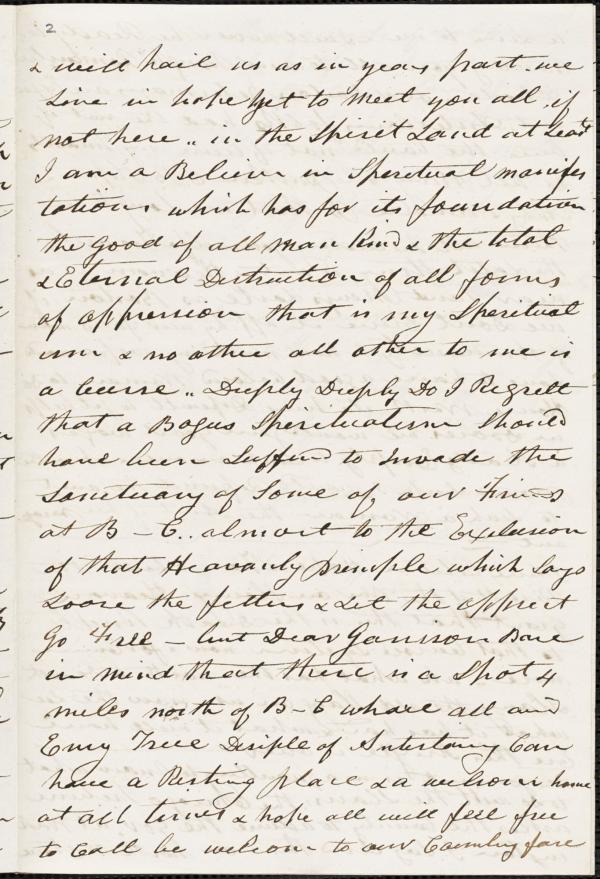 2
& will hail us as in years past. we
Live in hope yet to meet you all, if
not here „ in the Spirit Land at Least
I am a Believer in Speretual manifes
tations which has for its foundation
the good of all man Kind & the total
& Eternal Distruction of all forms
of oppression that is my Speritual
ism & no other all other to me is
a Curse „ Deeply Deeply Do I Regrett
that a Bogus Sperituatism Should
have been Suffered to invade the
Sanctuary of Some of our Friends
at B - C. almost to the Exclusion
of that Heavanly Prinsiple which Says
Loose the fetters & Let the opprest
Go Free - but Dear Garrison Bare
in mind that there is a Spot 4
miles north of B - C whare all and
Every True Disiple of Antislavry Can
have a Resting place & a welcom home
at all times & hope all will feel free
to Call be welcom to our Countryfare